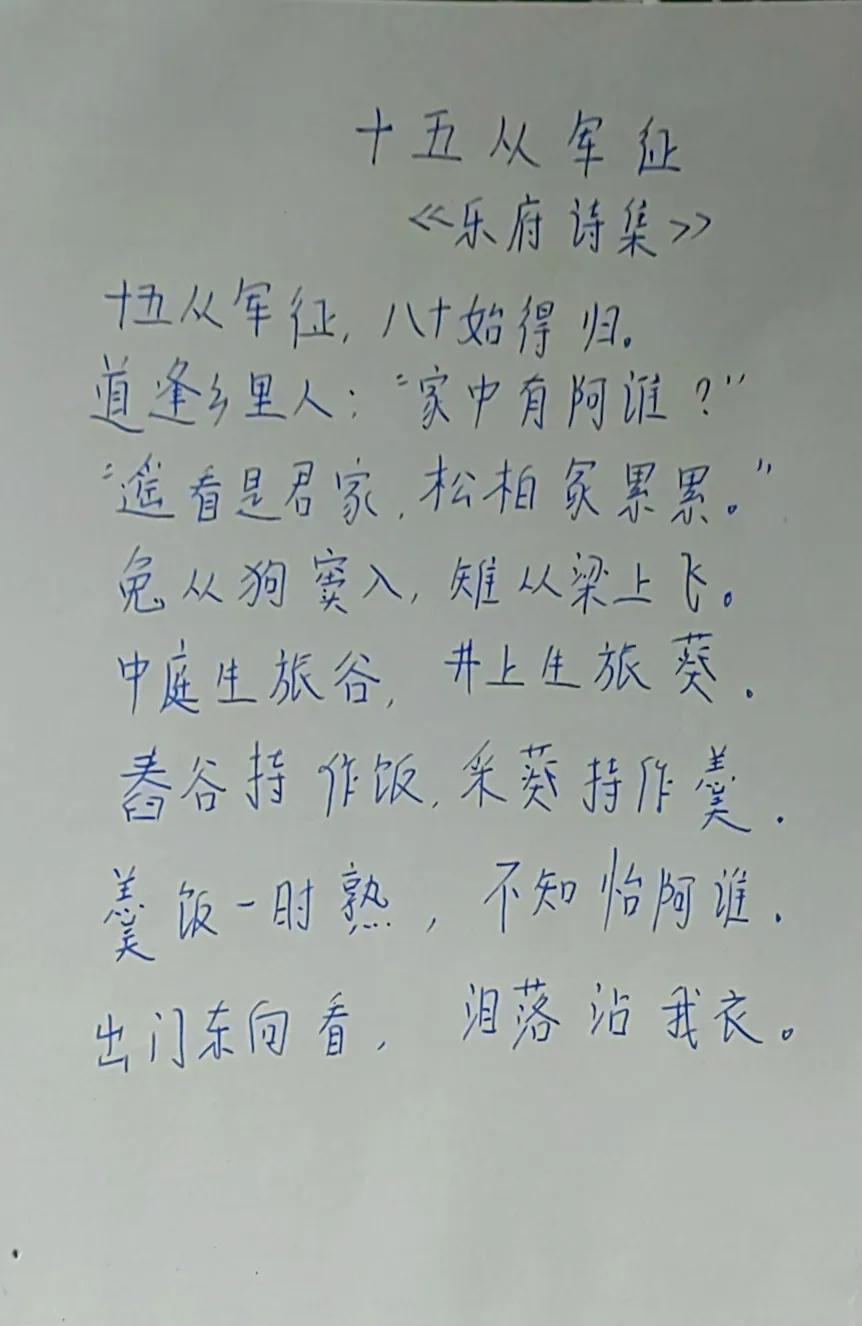 十五从军征
《乐府诗集》
十五从军征，八十始得归。
道逢乡里人：“家中有阿谁？”
“遥看是君家，松柏冢累累。”
兔从狗窦入，雉从梁上飞。
中庭生旅谷，井上生旅葵．
舂谷持作饭，采葵持作羹．
羹饭一时熟，不知怡阿谁．
出门东向看，泪落沾我衣。